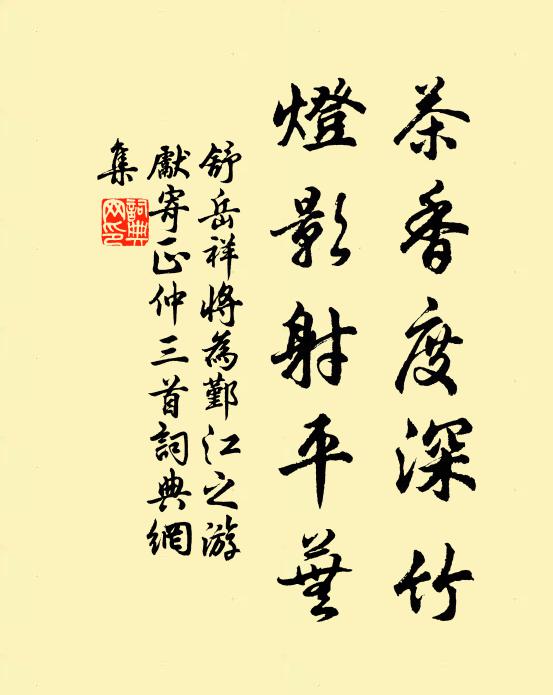 茶香度深竹
燈影射平蕪
舒岳祥將為鄞江之游
獻寄正仲三首詞典網
集
詞典網印